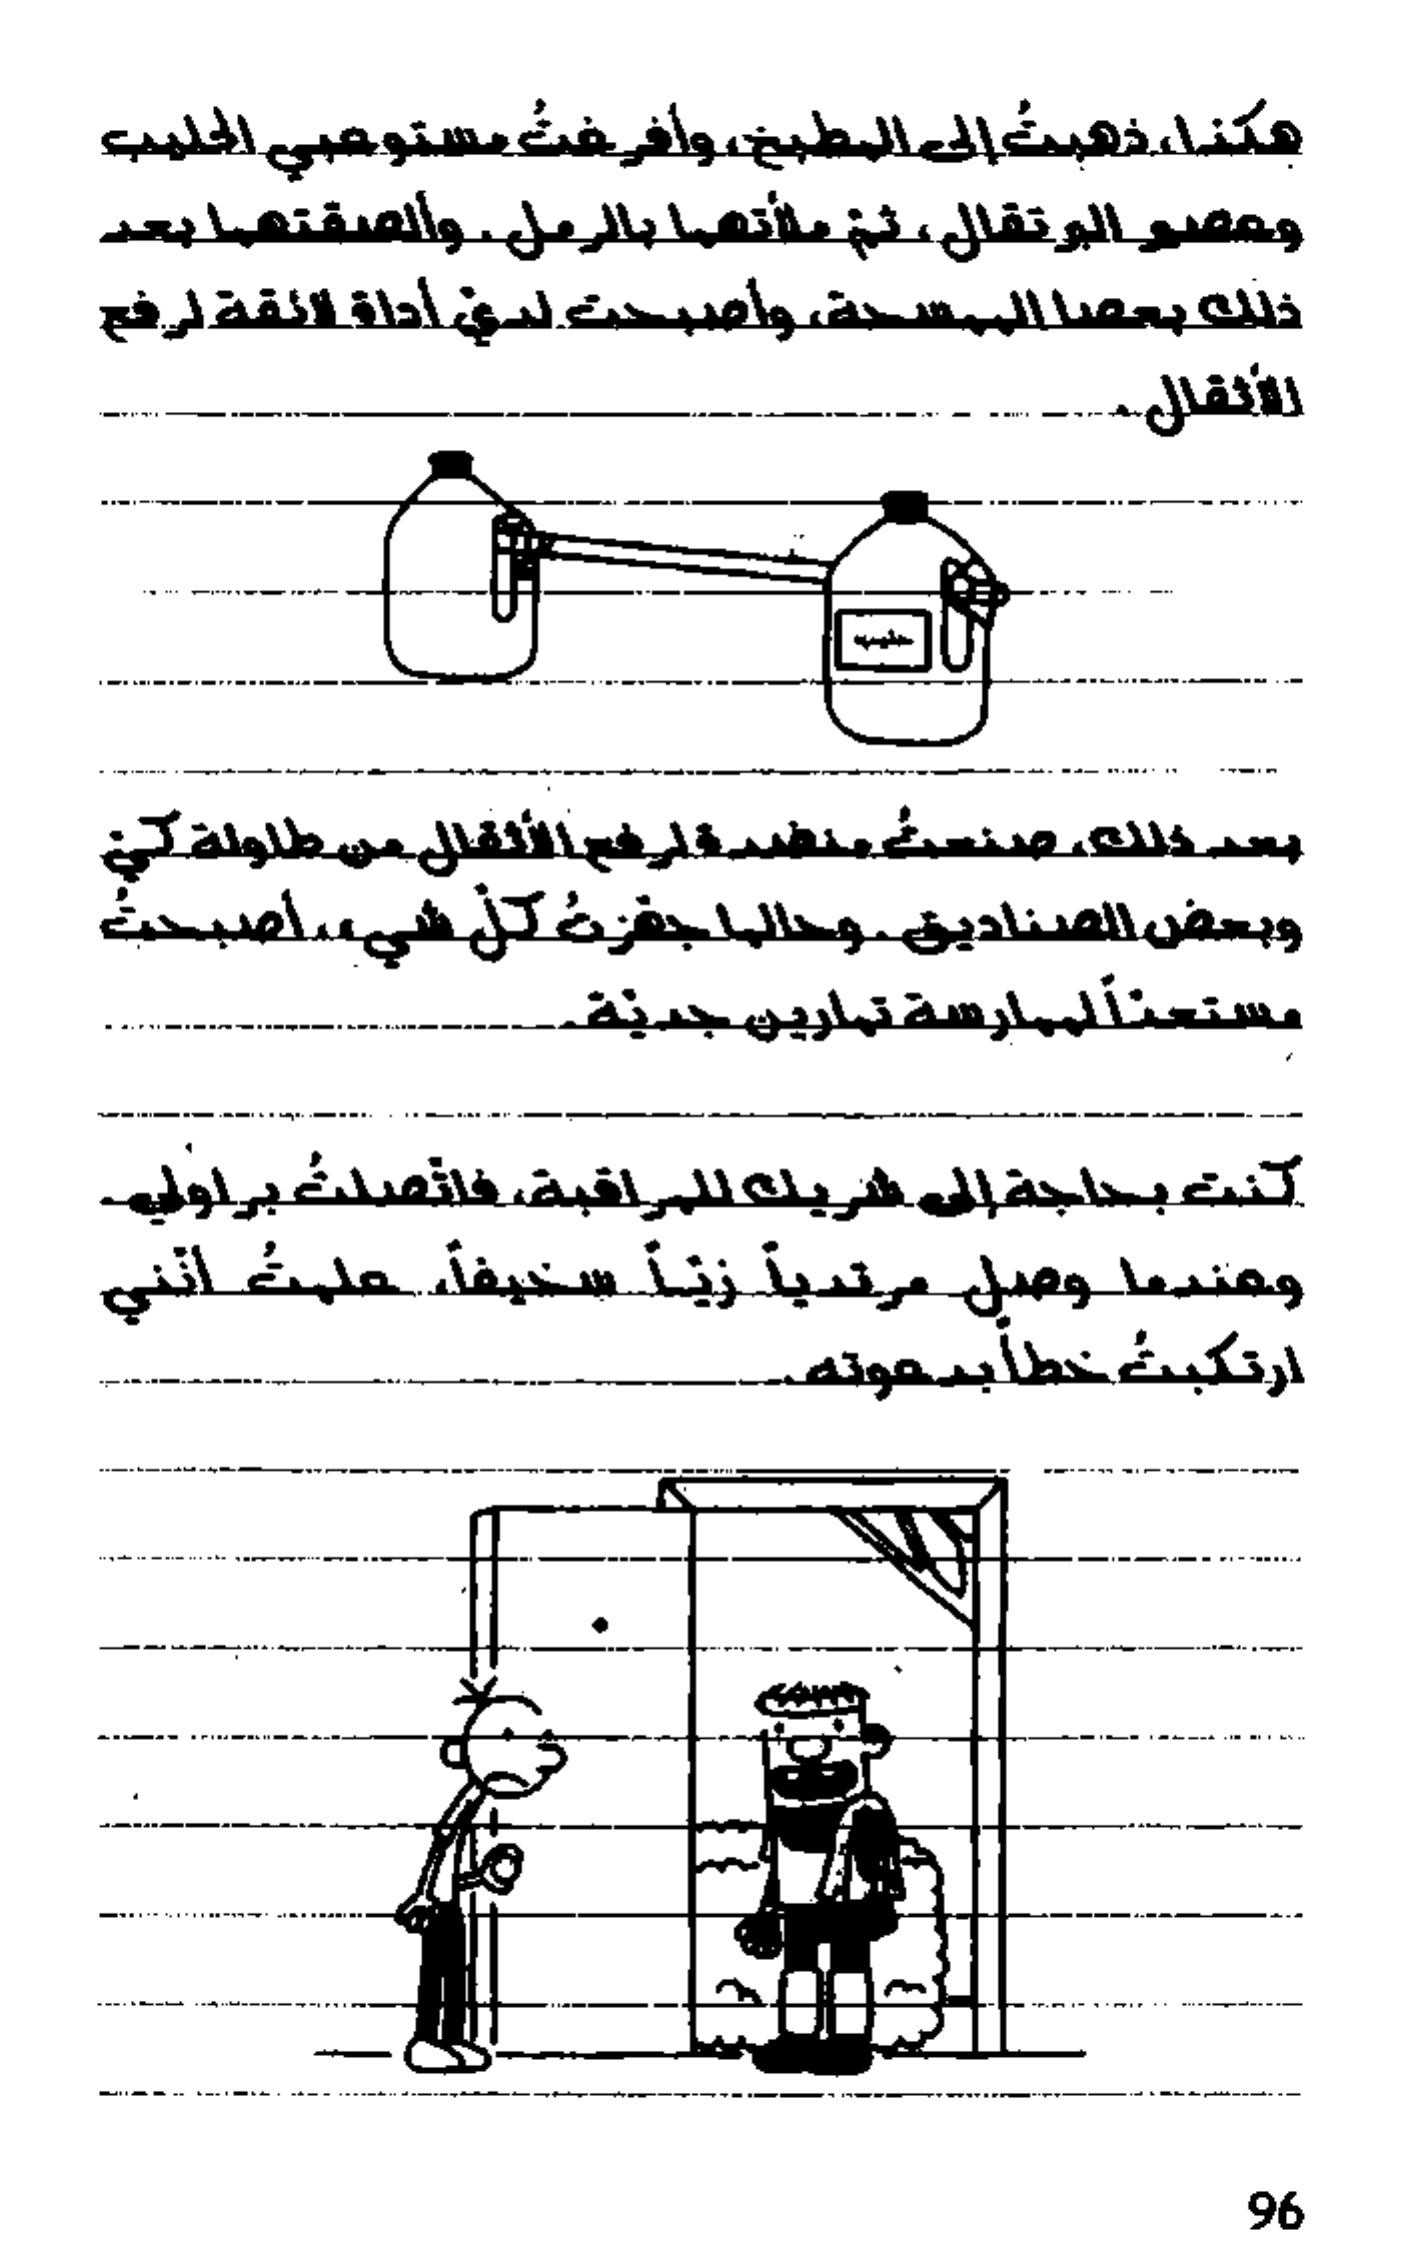 هكذا، ذهبتُ إلى المطبخ، وأفرغتُ مستوعبي الحليب
وعصير البرتقال، ثمّ ملأتهما بالرمل. وألصقتهما بعد
ذلك بعصا الممسحة، وأصبحت لديّ أداة لائقة لرفع
الأثقال.
حليب
بعد ذلك، صنعتُ منضدة لرفع الأثقال من طاولة كيّ
وبعض الصناديق. وحالما جهّزتُ كلّ شيء، أصبحتُ
مستعدّاً لممارسة تمارين جديّة.
كنت بحاجة إلى شريك للمراقبة، فاتّصلتُ براولي.
وعندما وصل مرتدياً زيّاً سخيفاً، علمتُ أنّني
ارتكبتُ خطأ بدعوته.
96